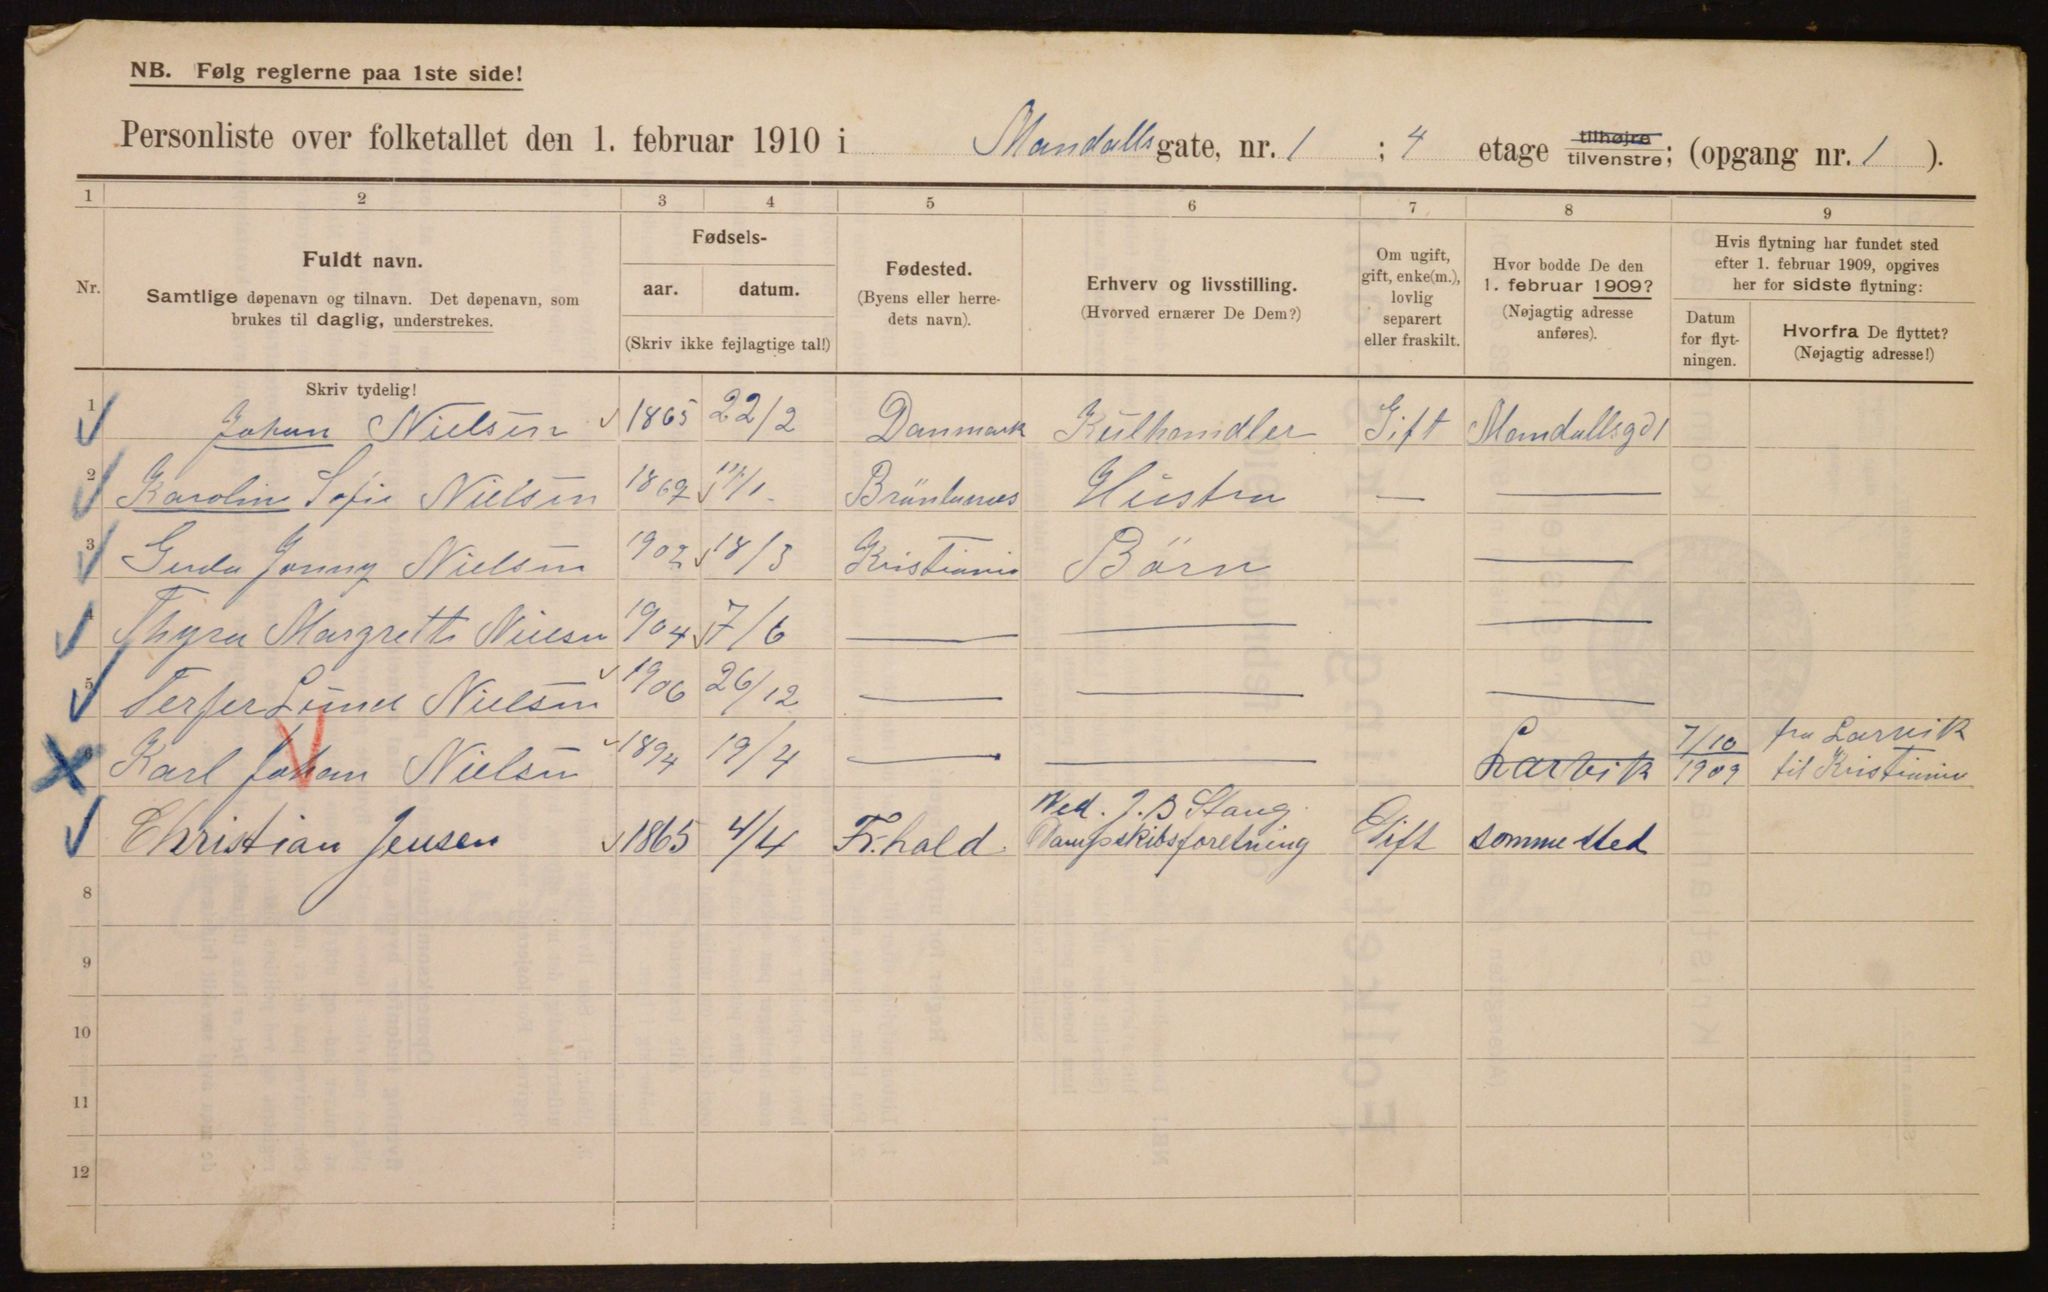 NB. Følg reglerne paa 1ste side!
Personliste over folketallet den 1. februar 1910 i Mandallsgate, nr. 1 ; 4 etage tilhøjre tilvenstre; (opgang nr. 1 ).
1 2 3 4 5 6 7 8 9
Nr.
Fuldt navn.
Samtlige døpenavn og tilnavn. Det døpenavn, som
brukes til daglig, understrekes.
Fødsels-
aar. datum.
(Skriv ikke fejlagtige tal!)
Fødested.
(Byens eller herre-
dets navn).
Erhverv og livsstilling.
(Hvorved ernærer De Dem?)
Om ugift,
gift, enke(m.),
lovlig
separert
eller fraskilt.
Hvor bodde De den
1. februar 1909?
(Nøjagtig adresse
anføres).
Hvis flytning har fundet sted
efter 1. februar 1909, opgives
her for sidste flytning:
Datum
for flyt-
ningen.
Hvorfra De flyttet?
(Nøjagtig adresse!)
Skriv tydelig!
1 Johan Nielsen 1865 22/2 Danmark Kulhandler Gift Mandallsgd 1
2 Karolin Sofie Nielsen 11/1 Hustru —
3 Jonny Nielsen 1902 18/3 Kristiania Børn
Thyra Margrethe Nielsen 1904 7/6
5 Lund Nielsen 1906 26/12
6 Karl Johan Nielsen 1894 19/4 Larvik 7/10 1909 fra Larvik
til Kristiania
Christian Jensen 1865 4/4 Fr.hald Ved. J. B Stang
Dampskibsforetning Gift somme sted
8
9
10
11
12